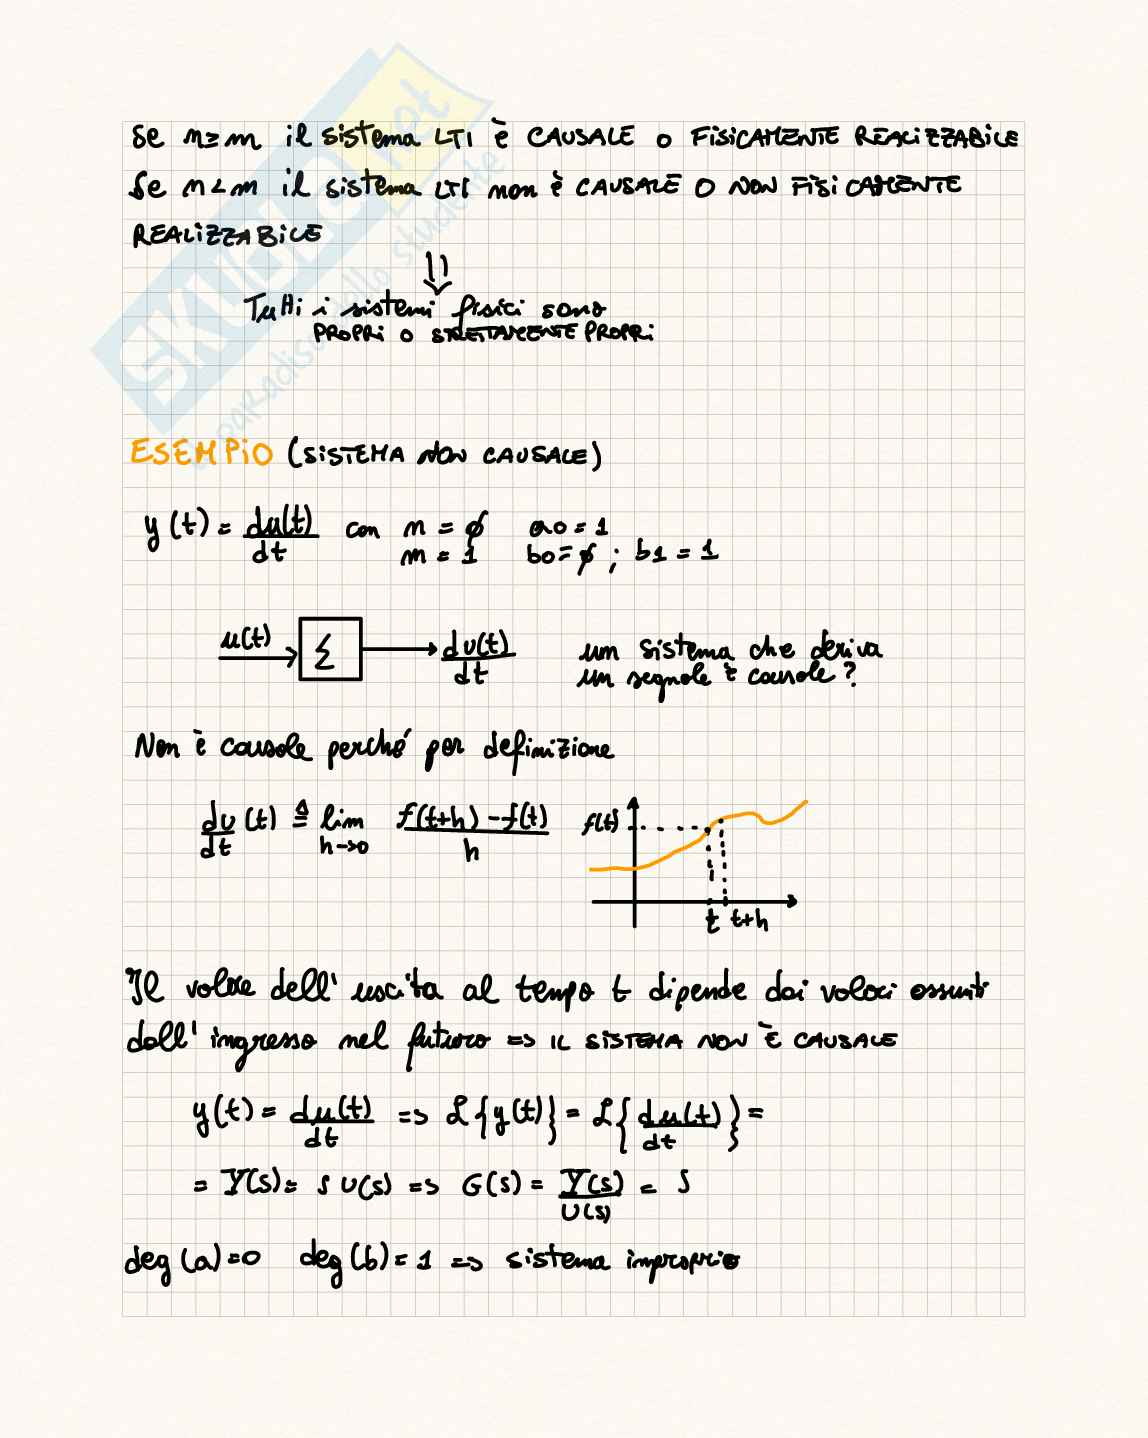 Se n≥m il sistema LTI è CAUSALE o FISICAMENTE REALIZZABILE
Se n<m il sistema LTI non è CAUSALE O NON FISICAMENTE
REALIZZABILE
⇓
Tutti i sistemi fisici sono
PROPRI O STRETTAMENTE PROPRI
ESEMPIO (SISTEMA NON CAUSALE)
y(t) = du(t)/dt con n = ∅ a0 = 1
m = 1 b0 = ∅ ; b1 = 1
u(t) Σ du(t)/dt
un sistema che deriva
un segnale è causale?
Non è causale perché per definizione
du/dt (t) ≜ lim h→0 f(t+h) - f(t) / h
f(t)
t t+h
Il valore dell'uscita al tempo t dipende dai valori assunti
dall'ingresso nel futuro => IL SISTEMA NON È CAUSALE
y(t) = du(t)/dt => L{y(t)} = L{du(t)/dt} =
= Y(s) = s U(s) => G(s) = Y(s)/U(s) = s
deg(a)=0 deg(b)=1 => sistema improprio
SKUOLA.net
il paradiso dello studente